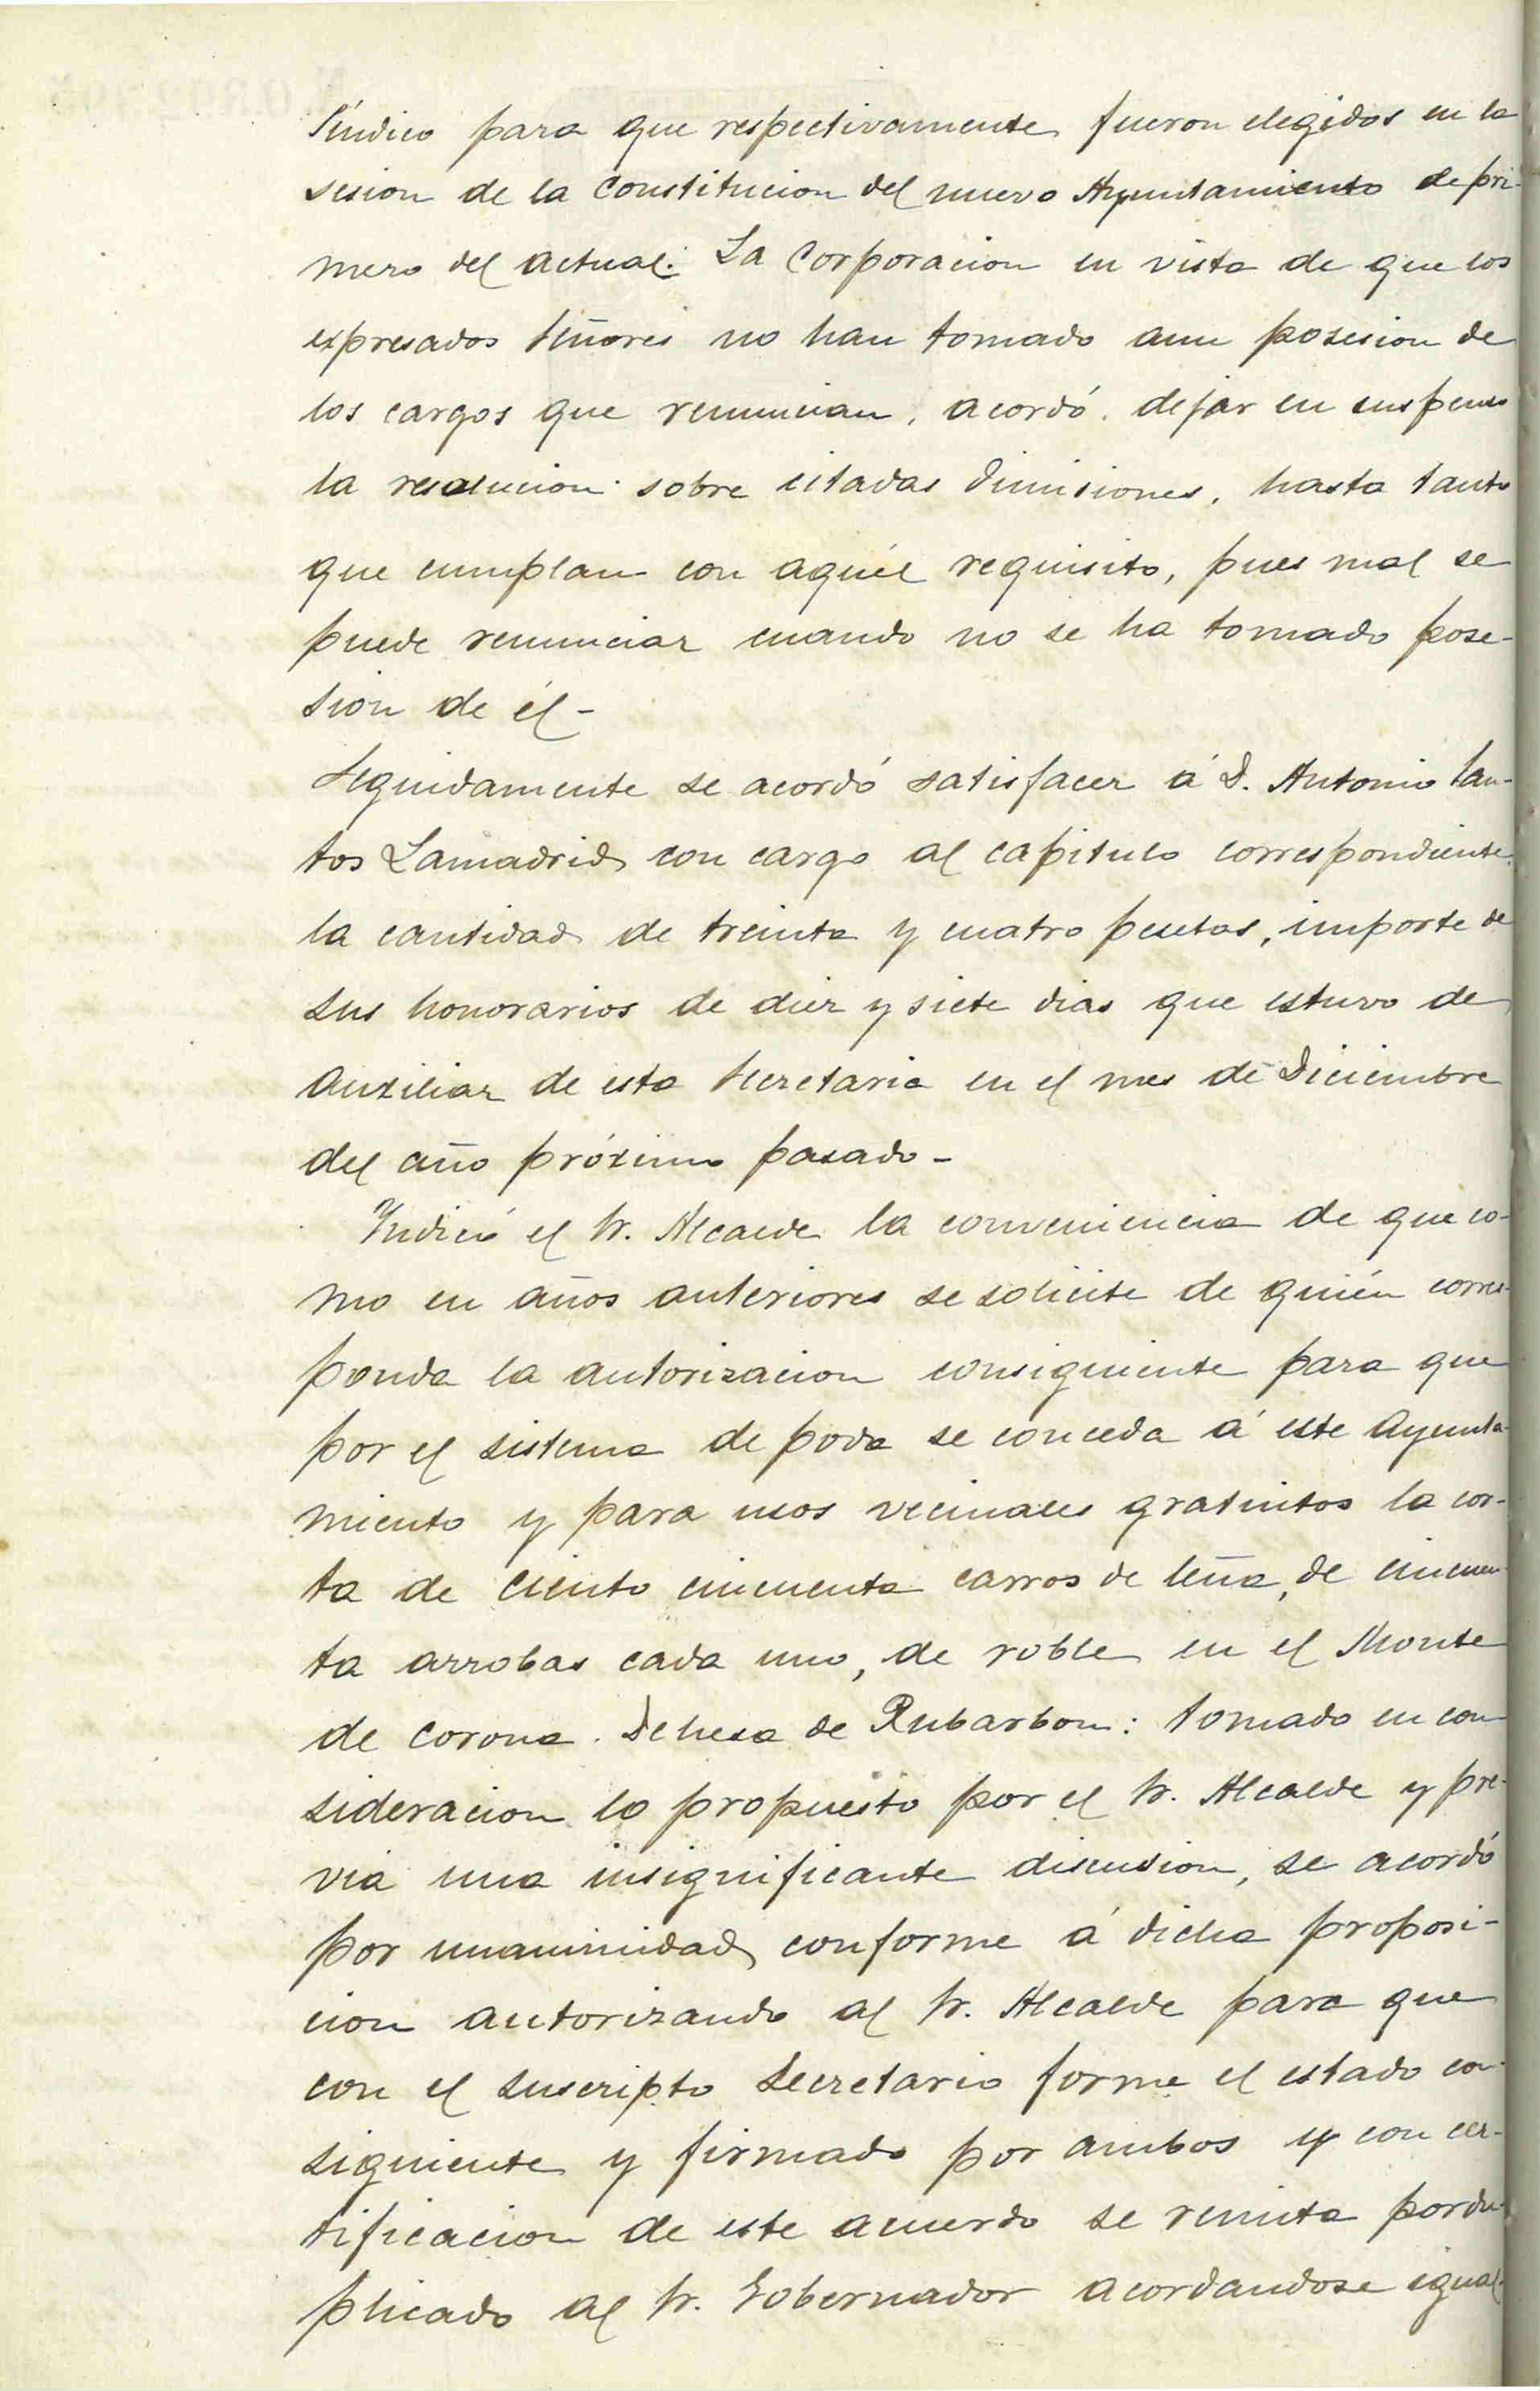 Síndico para que respectivamente fueron elegidos en la
sesion de la Constitucion del nuevo Ayuntamiento de pri-
mero del actual. La Corporacion en vista de que los
expresados Señores no han tomado aun posesion de
los cargos que renuncian, acordó dejar en suspenso
la resolucion sobre citadas dimisiones, hasta tanto
que cumplan con aquél requisito, pues mal se
puede renunciar cuando no se ha tomado pose-
sion de él-
Seguidamente se acordó satisfacer á D. Antonio San-
tos Lamadrid con cargo al capitulo correspondiente
la cantidad de treinta y cuatro pesetas, importe de
sus honorarios de diez y siete dias que estuvo de
auxiliar de esta Secretaria en el mes de Diciembre
del año próximo pasado-
Indicó el Sr. Alcalde la conveniencia de que co-
mo en años anteriores se solicite de quién corres-
ponda la autorizacion consiguiente para que
por el sistema de poda se conceda á este Ayunta-
miento y para usos vecinales gratuitos la cor-
ta de ciento cincuenta carros de leña, de cincuen-
ta arrobas cada uno, de roble en el Monte
de corona. Dehesa de Rubarbon: tomado en con
sideracion lo propuesto por el Sr. Alcalde y pre-
via una insignificante discusion, se acordó
por unanimidad conforme á dicha proposi-
cion autorizando al Sr. Alcalde para que
con el suscripto Secretario forme el estado con-
siguiente y firmado por ambos y con cer-
tificacion de este acuerdo se remita por du-
plicado al Sr. Gobernador acordandose igual-